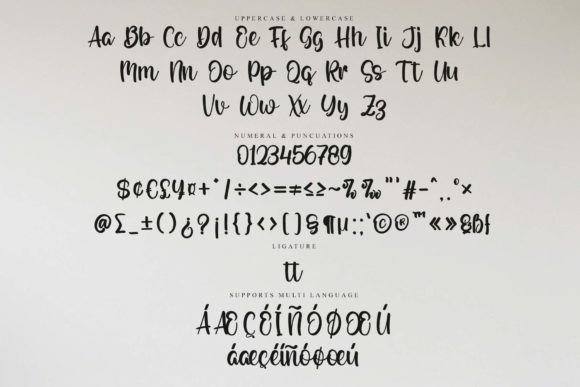 UPPERCASE & LOWERCASE
Aa Bb Cc Dd Ee Ff Gg Hh Ii Jj Kk Ll
Mm Nn Oo Pp Qq Rr Ss Tt Uu
Vv Ww Xx Yy Zz
NUMERAL & PUNCUATIONS
0123456789
$¢€£¥¤+*/÷<>=≠≤≥~%‰"'#-^,.°×
@∑_±()¿?¡!{}<>[]§¶µ:;'©®™«»§ßf
LIGATURE
tt
SUPPORTS MULTI LANGUAGE
ÁÆÇÉÍÑÓØŒÚ
áæçéíñóøœú